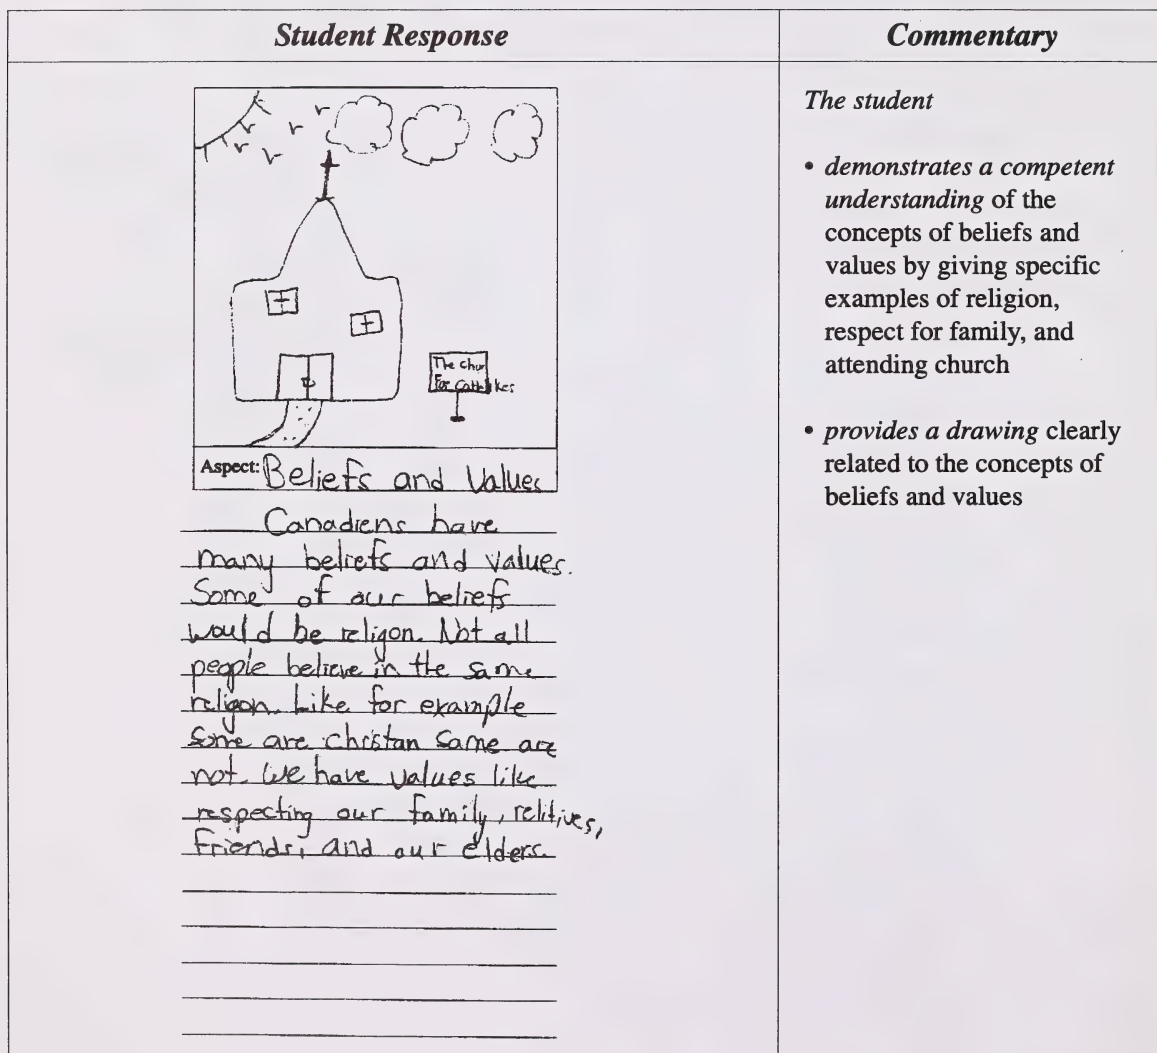 Student Response
Commentary
The chur
For Cathlikes
Aspect: Beliefs and Values
Canadiens have
many beliefs and values.
Some of our beliefs
would be religon. Not all
people believe in the same
religon. Like for example
some are christan same are
not. We have values like
respecting our family, relitives,
friends, and our elders.
The student
• demonstrates a competent
understanding of the
concepts of beliefs and
values by giving specific
examples of religion,
respect for family, and
attending church
• provides a drawing clearly
related to the concepts of
beliefs and values